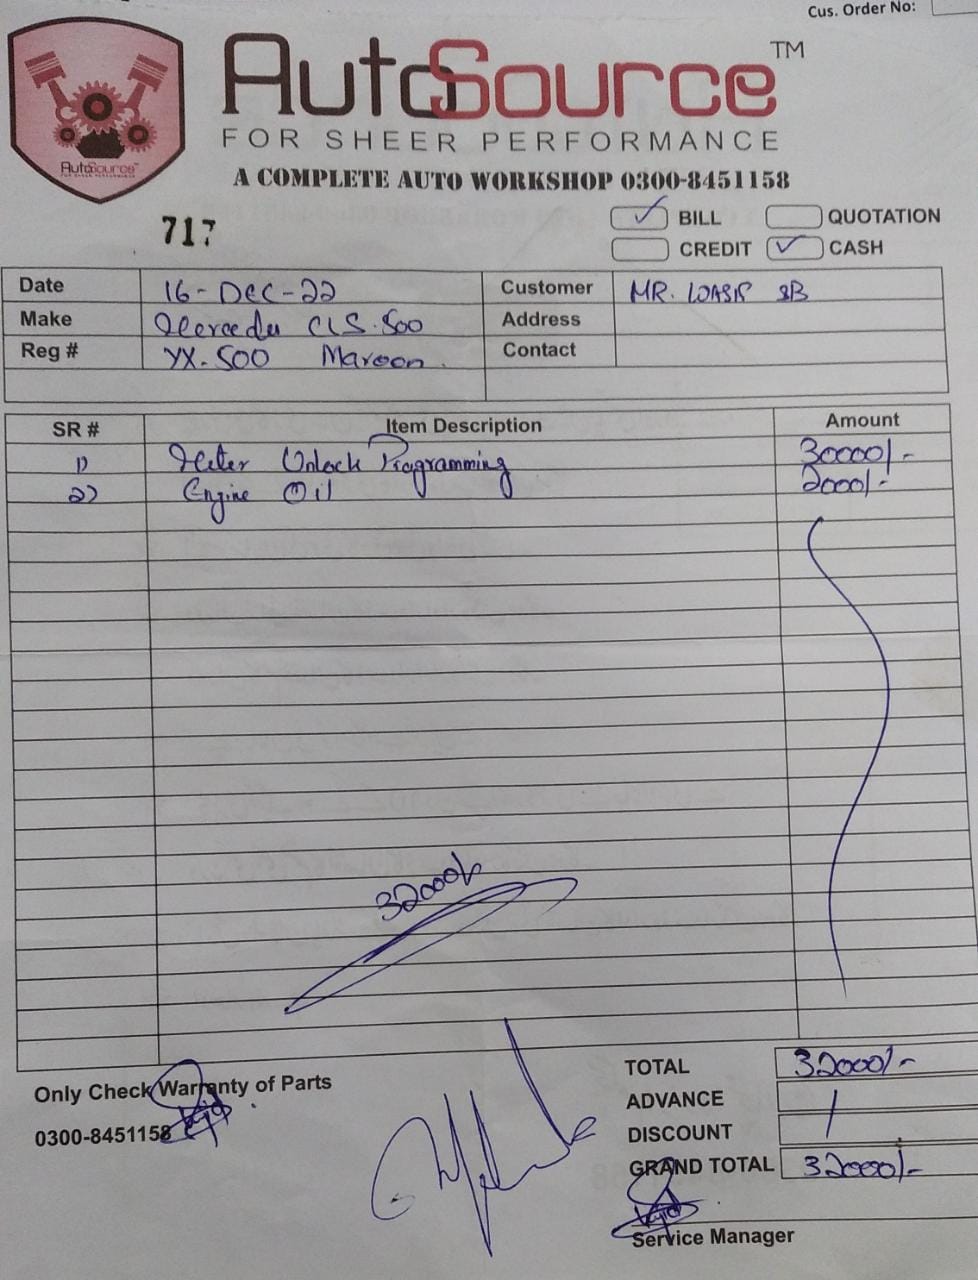 Cus. Order No:
AutoSource™
FOR SHEER PERFORMANCE
A COMPLETE AUTO WORKSHOP 0300-8451158
AutoSource™
717
✓ BILL QUOTATION
CREDIT ✓ CASH
Date 16-Dec-22 Customer MR. WASIF SB
Make Mercedes CLS.500 Address
Reg # YX-500 Maroon. Contact
SR # Item Description Amount
1) Meter Unlock Programming 30000/-
2) Engine Oil 2000/-
32000/-
Only Check Warranty of Parts
0300-8451158
TOTAL 32000/-
ADVANCE
DISCOUNT
GRAND TOTAL 32000/-
Service Manager